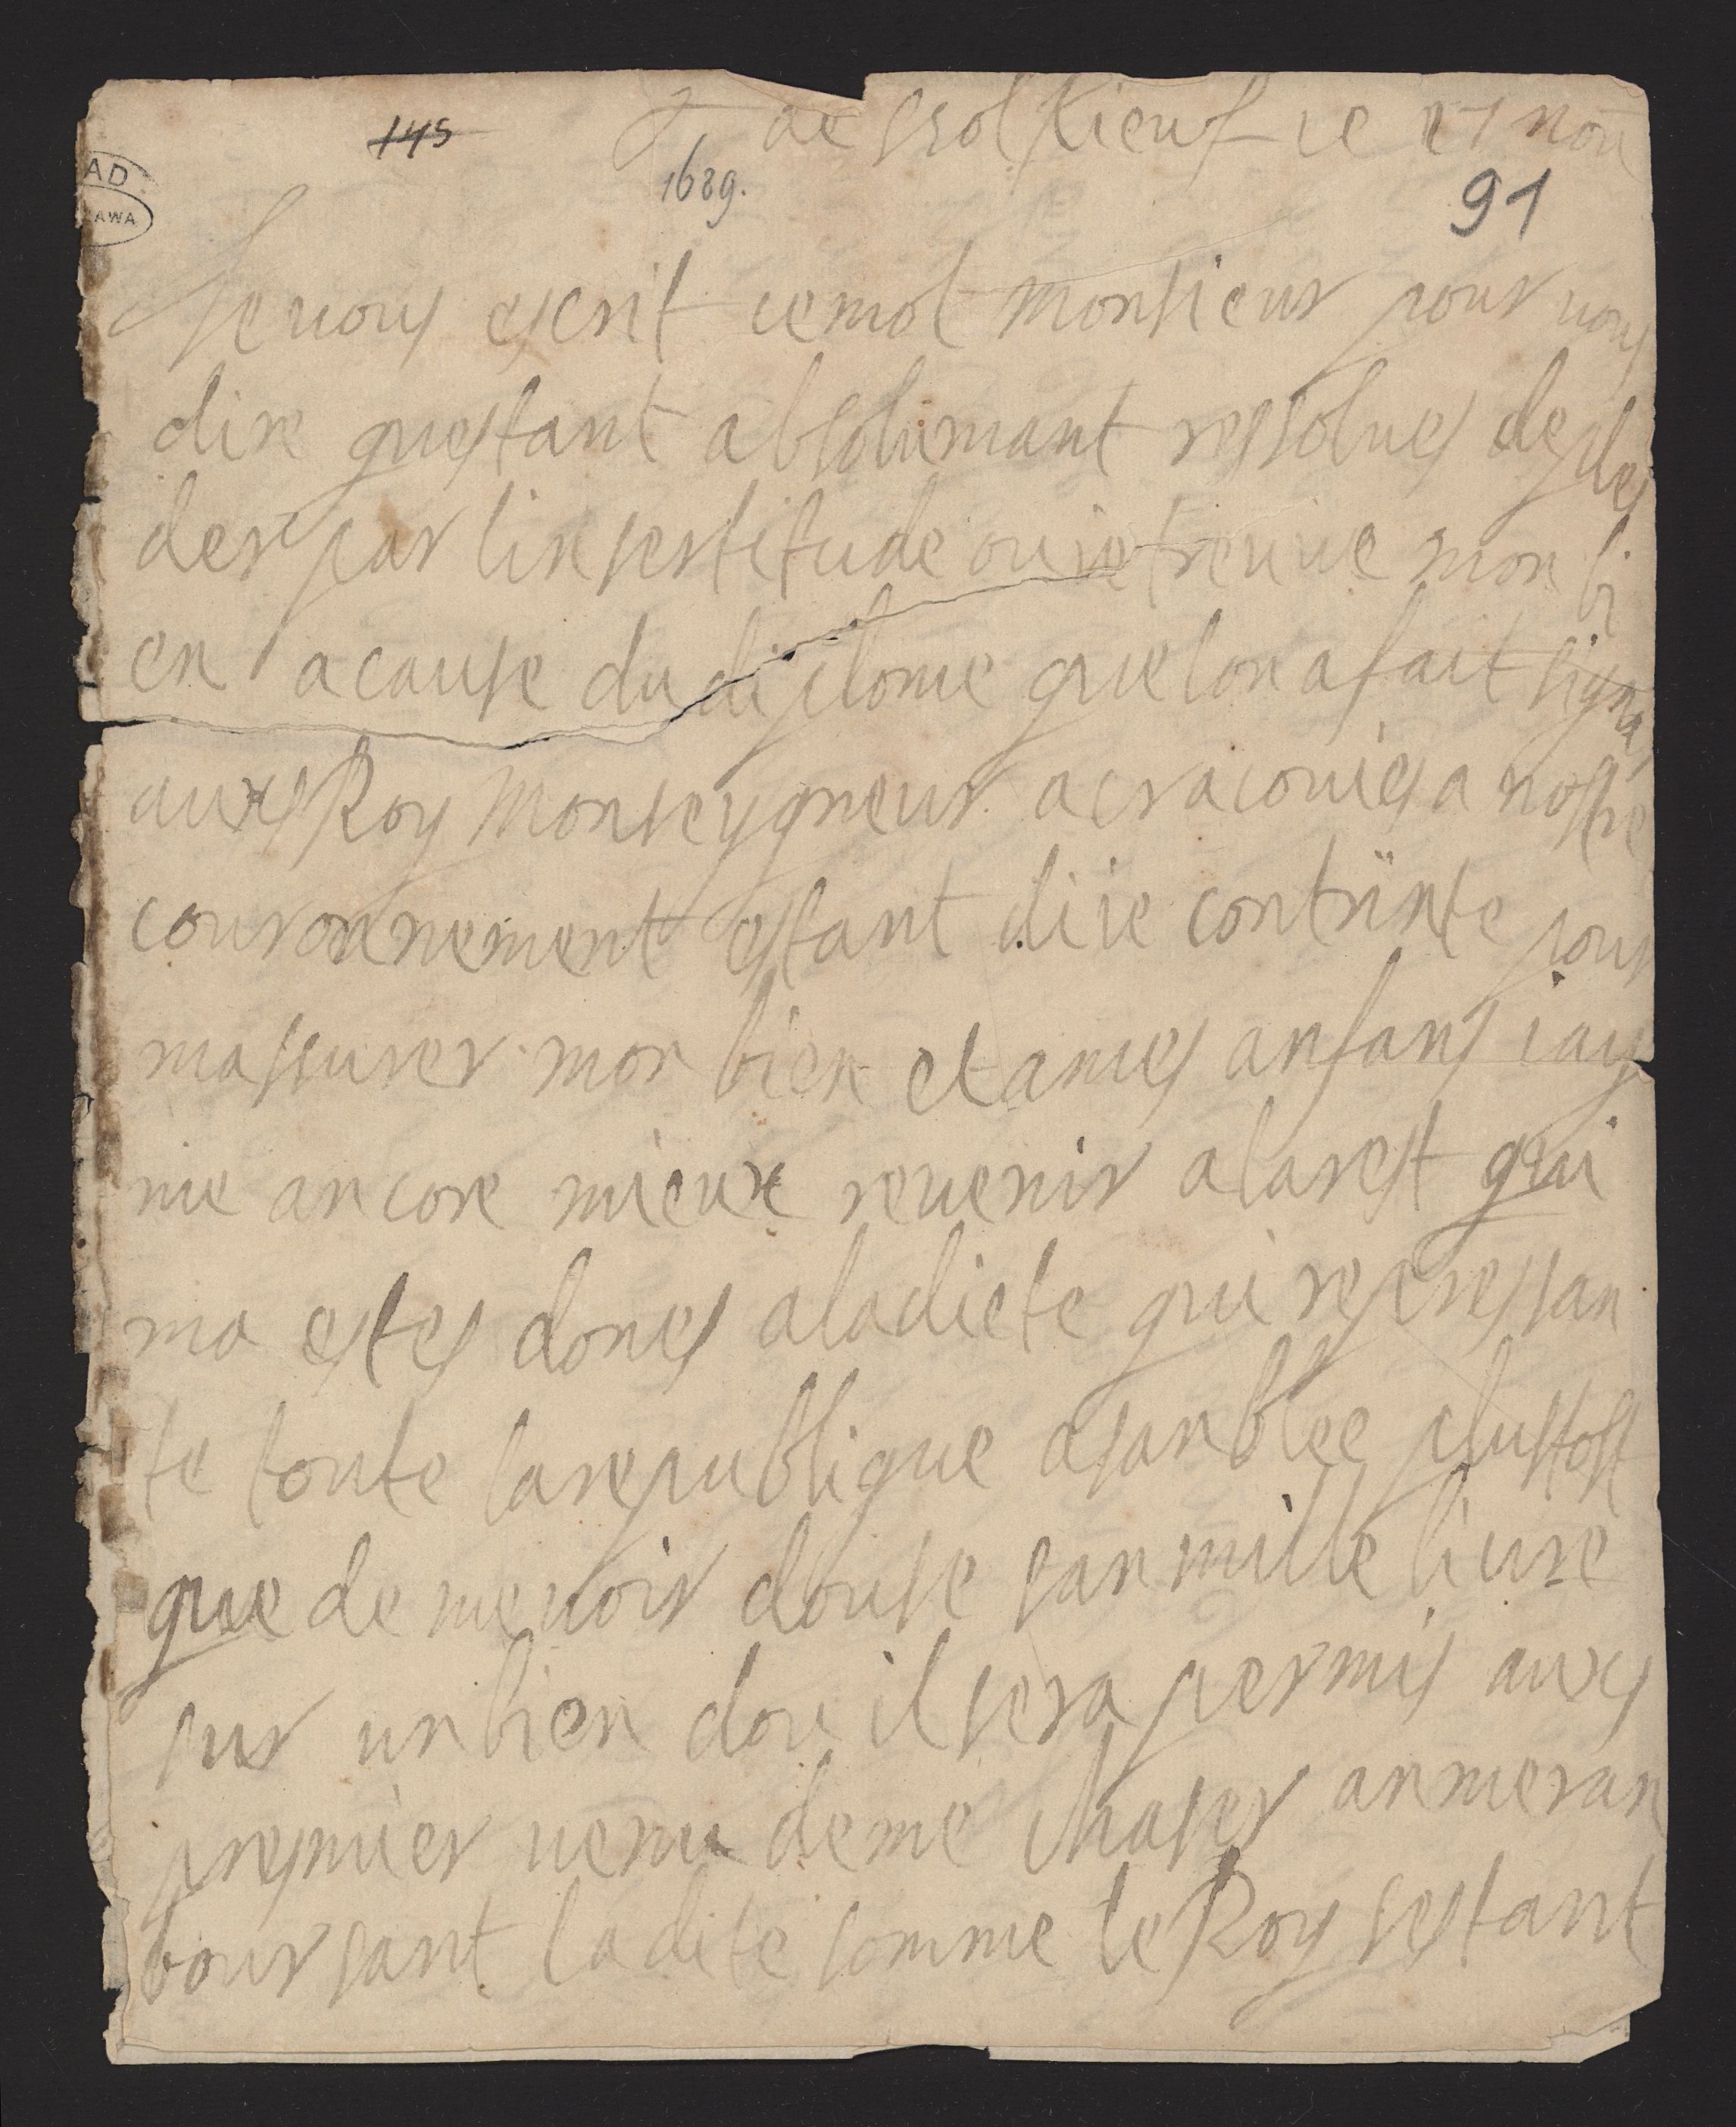 145 a e Grolkieuf ce 17 nou
1689.
91
AD
AWA
Je uous escrit ce mot monsieur pour uous
dire questant absolumant ressolues de ples
der par linsertitude ou ie treuue mon bi
en a cause du diplome que lon a fait signa
auxs Roy Monseygneur a cracouies a nostre
couronnement estant di ie contrinte pour
massurer mon bien et a mes anfans iay
me ancore mieux reuenir a larest qui
ma estes dones a la diete qui repressan
te toute la republique asanblee plustost
que de me uoir douse san mille liure
sur un bien dou il sera permis auxs
presmier uenu de me chaser an me ran
boursant la dite somme le Roy sestant